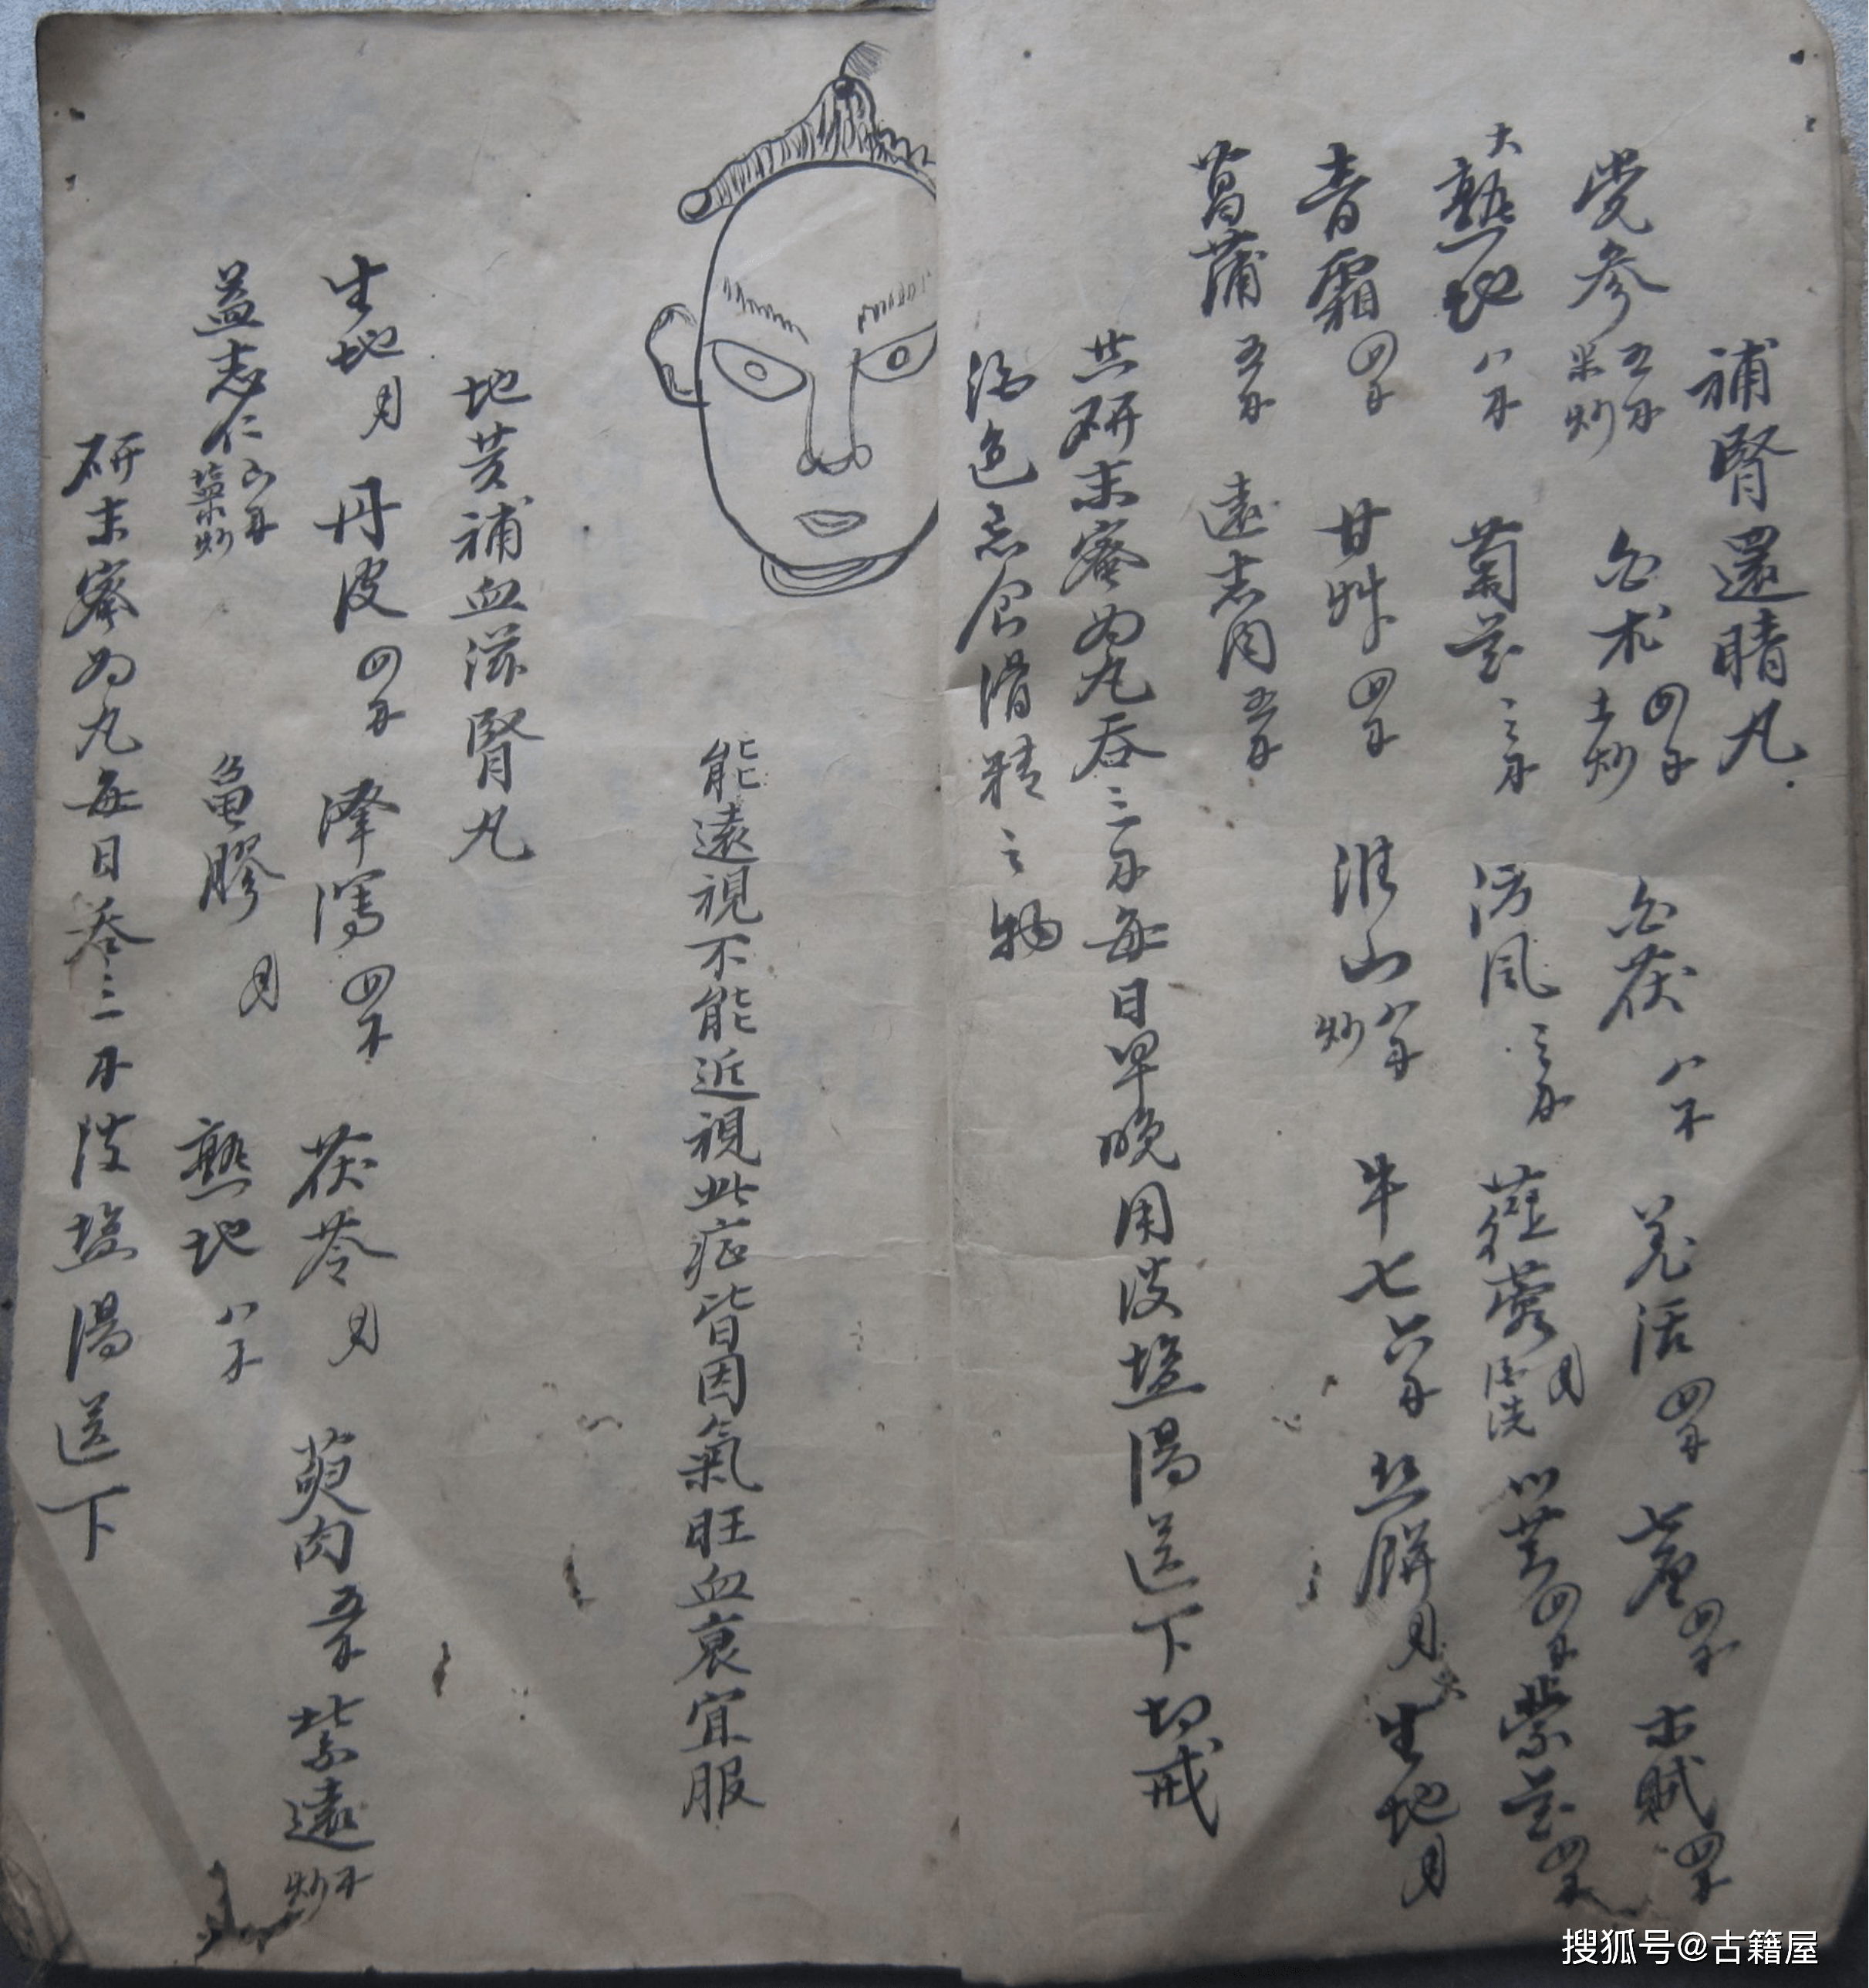 補腎還睛丸
党參五錢米炒 白术四錢土炒 白茯八錢 羌活四錢 四錢 木賊四錢
大熟地八錢 菊花三錢 防風三錢 蓉 酒洗 川芎四錢 四錢
青霜四錢 甘艸四錢 淮山八錢炒 牛七六錢 生地
菖蒲五錢 遠志肉五錢
共研末蜜为丸吞三錢每日早晚用淡塩湯送下切戒
酒色忌食滑精之物
能遠視不能近視此症皆因氣旺血衰宜服
地黄補血滋腎丸
生地 丹皮四錢 澤瀉四錢 茯苓 萸肉五錢 遠 炒
益志仁 塩 炒 亀膠 熟地八錢
研末蜜为丸每日吞三錢淡塩湯送下
搜狐号@古籍屋